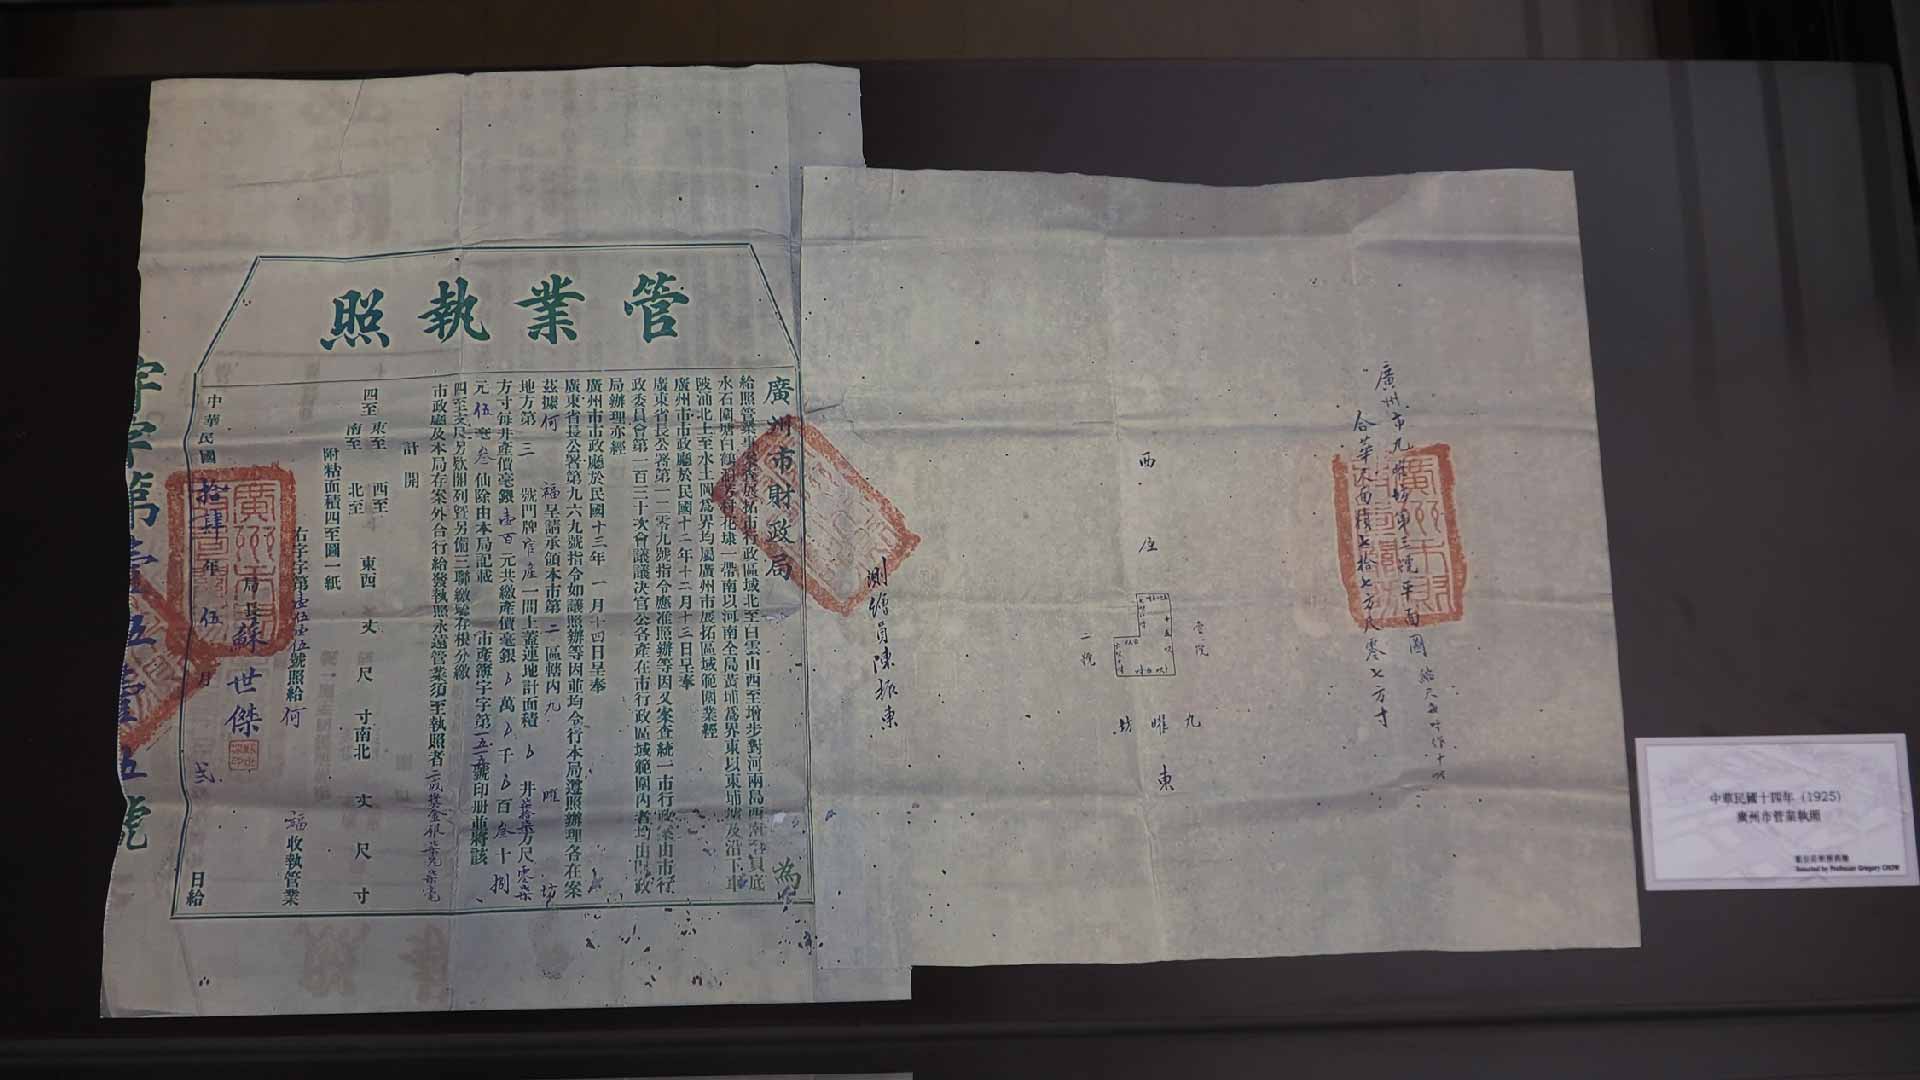 管業執照
廣州市財政局 為
給照管業事
水石圍塘白鶴洞芳村花埭一帶南以河南全局黃埔為界東以東埔墟及沿下車
陂涌北上至水土岡為界均屬廣州市展拓區域範圍業經
廣州市市政廳於民國十二年十二月十三日呈奉
廣東省長公署第一二零九號指令應准照辦等因又案查統一市行政案由市行
政委員會第一百三十次會議議決官公各產在市行政區域範圍內者均由財政
局辦理亦經
廣州市市政廳於民國十三年一月十四日呈奉
廣東省長公署第九六九號指令如議照辦等因並均令行本局遵照辦理各在案
茲據何福呈請承領本市第二區轄內九曜坊
地方第三號門牌官產一間上蓋連地計面積 井 方尺零柒
方寸每井產價毫銀壹百元共繳產價毫銀 萬 千 百叁十捌
元伍毫叁仙除由本局記載 市產簿字字第一五一五號印册並將該
四至丈尺另欵開列暨另備三聯繳驗存根分繳
市政廳及本局存案外合行給發執照永遠管業須至執照者
計開
四至 東至 西至 東西 丈 尺 寸南北 丈 尺 寸
南至 北至
附粘面積四至圖一紙
右字字第壹伍壹伍號照給何福收執管業
局長蘇世傑
中華民國拾肆年伍月 日給
字字第壹五壹五號
廣州市九曜坊第三號平面圖
合華尺面積七拾七方尺零七方寸
壹號
九曜坊
東
西
二號
測繪員陳振東
中華民國十四年（1925）
廣州市管業執照
Donated by Professor Gregory CHOW